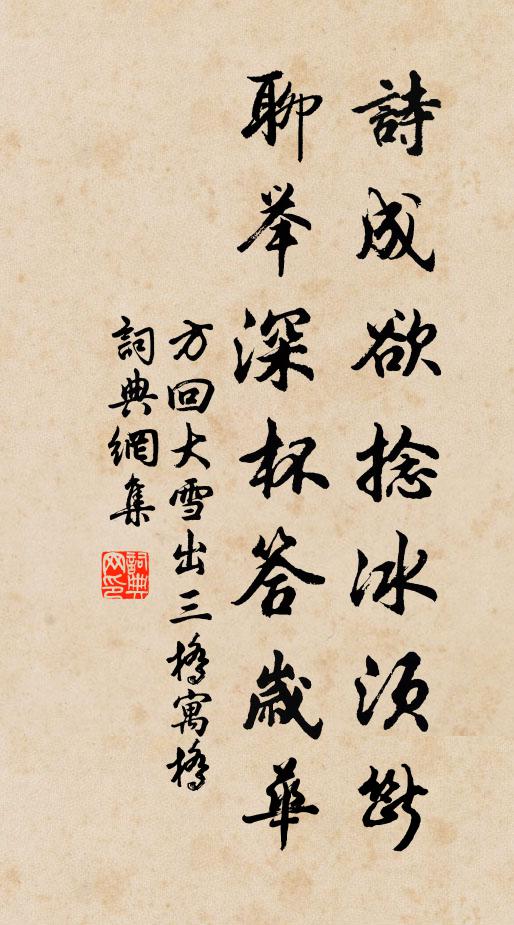 詩成欲捻冰須斷
聊举深杯答歲華
方回大雪出三橋寓橋
詞典網集
詞典网印